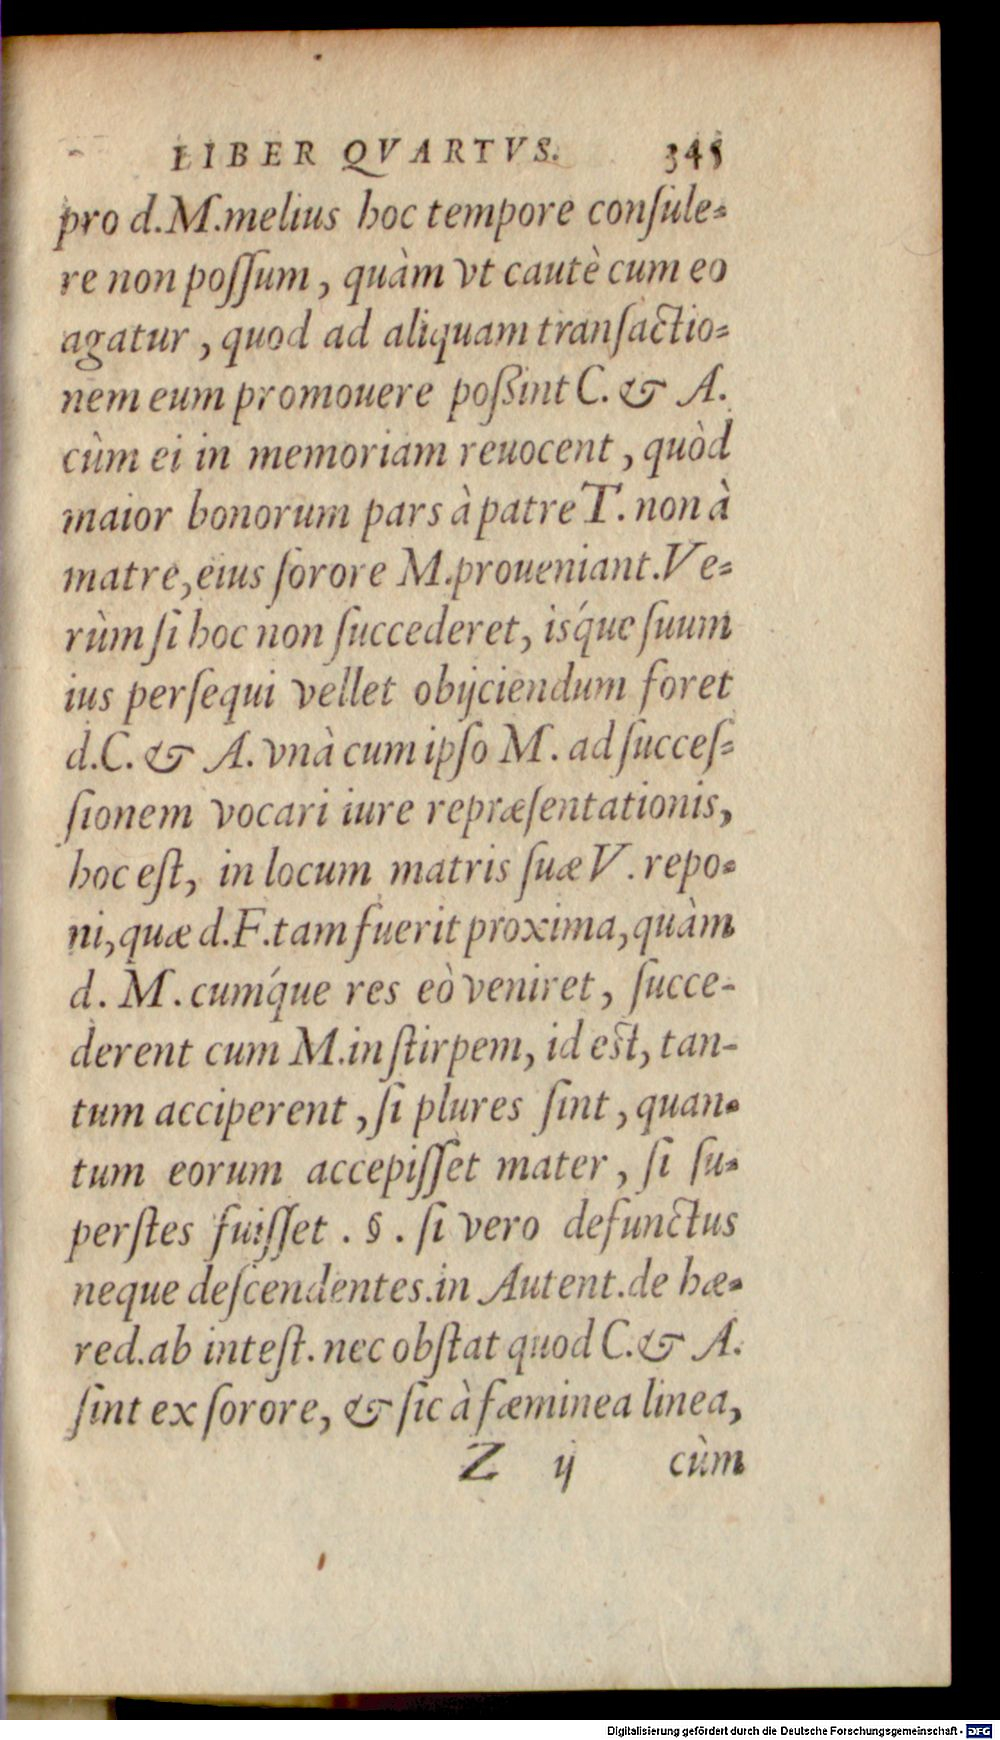 LIBER QVARTVS. 345
pro d.M.melius hoc tempore conſule=
re non poſſum, quàm vt cautè cum eo
agatur, quod ad aliquam tranſactio=
nem eum promouere poßint C. & A.
cùm ei in memoriam reuocent, quòd
maior bonorum pars à patre T. non à
matre, eius ſorore M.proueniant.Ve=
rùm ſi hoc non ſuccederet, iśque ſuum
ius perſequi vellet obijciendum foret
d.C. & A. vnà cum ipſo M. ad ſucceſ=
ſionem vocari iure repræſentationis,
hoc eſt, in locum matris ſuæ V. repo=
ni, quæ d.F.tam fuerit proxima, quàm
d. M. cumq́ue res eò veniret, ſucce-
derent cum M.in ſtirpem, id eſt, tan-
tum acciperent, ſi plures ſint, quan=
tum eorum accepiſſet mater, ſi ſu=
perſtes fuiſſet. §. ſi vero defunctus
neque deſcendentes.in Autent.de hæ=
red.ab inteſt. nec obſtat quod C.& A.
ſint ex ſorore, & ſic à fæminea linea,
Z ij cùm
Digitalisierung gefördert durch die Deutsche Forschungsgemeinschaft - DFG